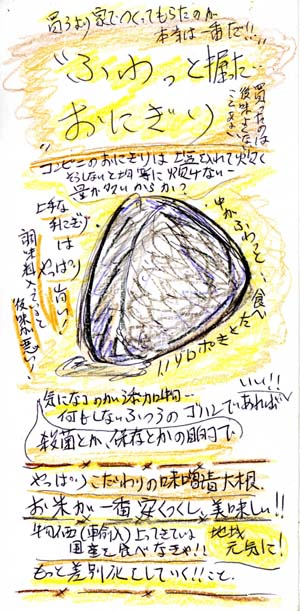 買うより家でつくってもらたのが
本当は一番だ!!
"ふわっと握た‥
おにぎり"
買ったのは
後味がよくない
ことある
コンビニのおにぎりは塩を入れて炊く
そうしないと均等に炊けない‥
量が多いからか?
上手な
おにぎり
は
やっぱり
旨い!
調味料入っていると
後味が悪い!
中がふわっと
食べ
気になるのが添加物‥
何もしないふつうのゴハンであれば
いい!!
殺菌とか、保存とかの目的で
やっぱりこだわりの味噌漬大根
お米が一番安くつくし、美味しい!!
物価(輸入)上ってきている
国産を食べなきゃ!!
地域
元気に!
もっと差別化していく!!こと.